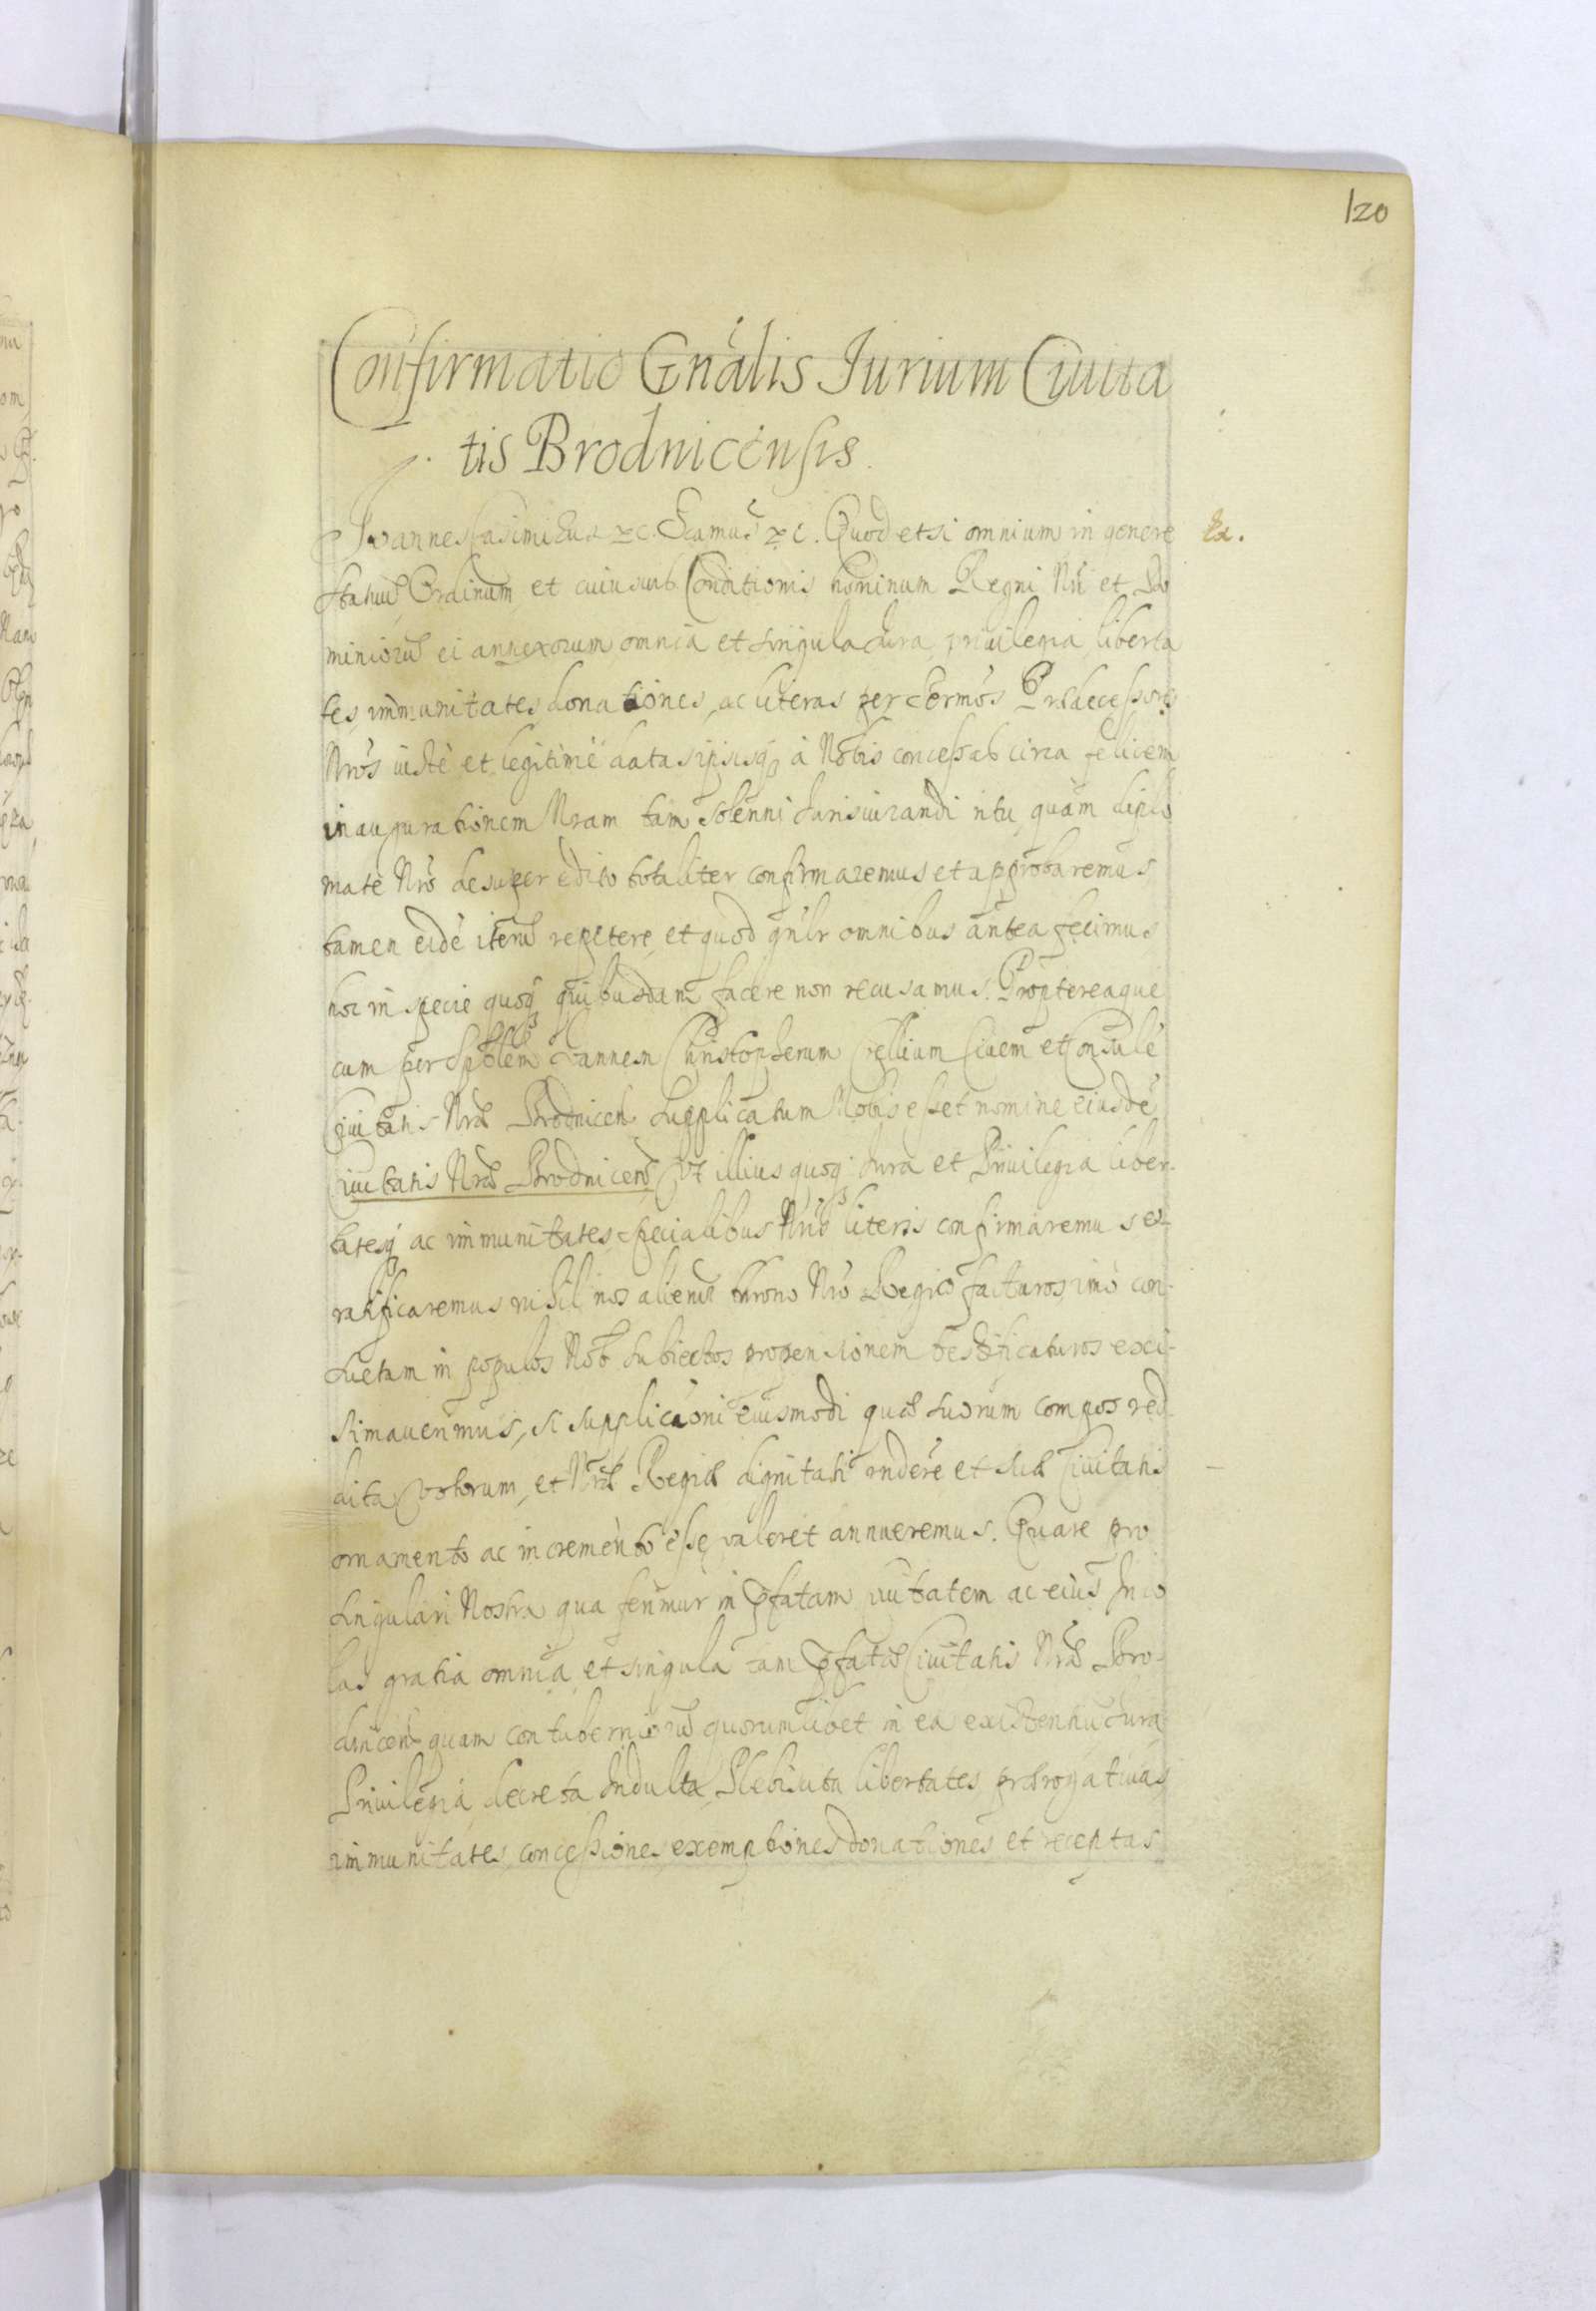 120
Confirmatio Gnãlis Jurium Ciuita
tis Brodnicensis.
Joannes Casimirus &c. Scamus &c. Quod etsi omnium in genere
Ex.
statuũ Ordinum, et cuiusuis Conditionis hominum Regni Nri et Do
miniorũ ei annexorum omnia et singula Jura, priuilegia, liberta
tes, immunitates, donationes, ac literas per Sermos Prædecessores
Nros iuste et legitime datas ipsisq, à Nobis concessas circa felicem
inaugurationem Nram tam solenni Jurisiurandi ritu, quam diplo
mate Nro desuper edito totaliter confirmaremus et approbaremus,
tamen eidẽ iterũ repetere, et quod gnlr omnibus antea fecimus,
hoc in specie quoq, quibusdam facere non recusamus. Proptereaque
cum per Spblem Joannem Christopherum Crellium Ciuem et Consulẽ
Ciuitatis Nræ Brodnicen Supplicatum Nobis esset nomine eiusdẽ
Ciuitatis Nræ Brodnicen Vt illius quoq, Jura et Priuilegia liber-
tatesq, ac immunitates, specialibus Nris literis confirmaremus et
ratificaremus nihil nos alienũ throno Nro Regio facturos imò con-
suetam in populos Nob subiectos propensionem testificaturos exi-
stimauerimus, si supplicãoni eiusmodi quæ suorum compos red-
dita votorum, et Nræ Regiæ dignitati ondere et suæ Ciuitatis
ornamento ac incremento esse valeret annueremus. Quare pro
singulari Nostra qua ferimur in pfatam ciuitatem ac eius Inco
las gratia omnia, et singula tam pfatæ Ciuitatis Nræ Bro-
dnicen quam contuberniorũ quorumlibet in ea existentiũ Jura
Priuilegia, decreta Indulta, Plebiscita libertates, prærogatiuas,
immunitates, concessiones, exemptiones, donationes et receptas